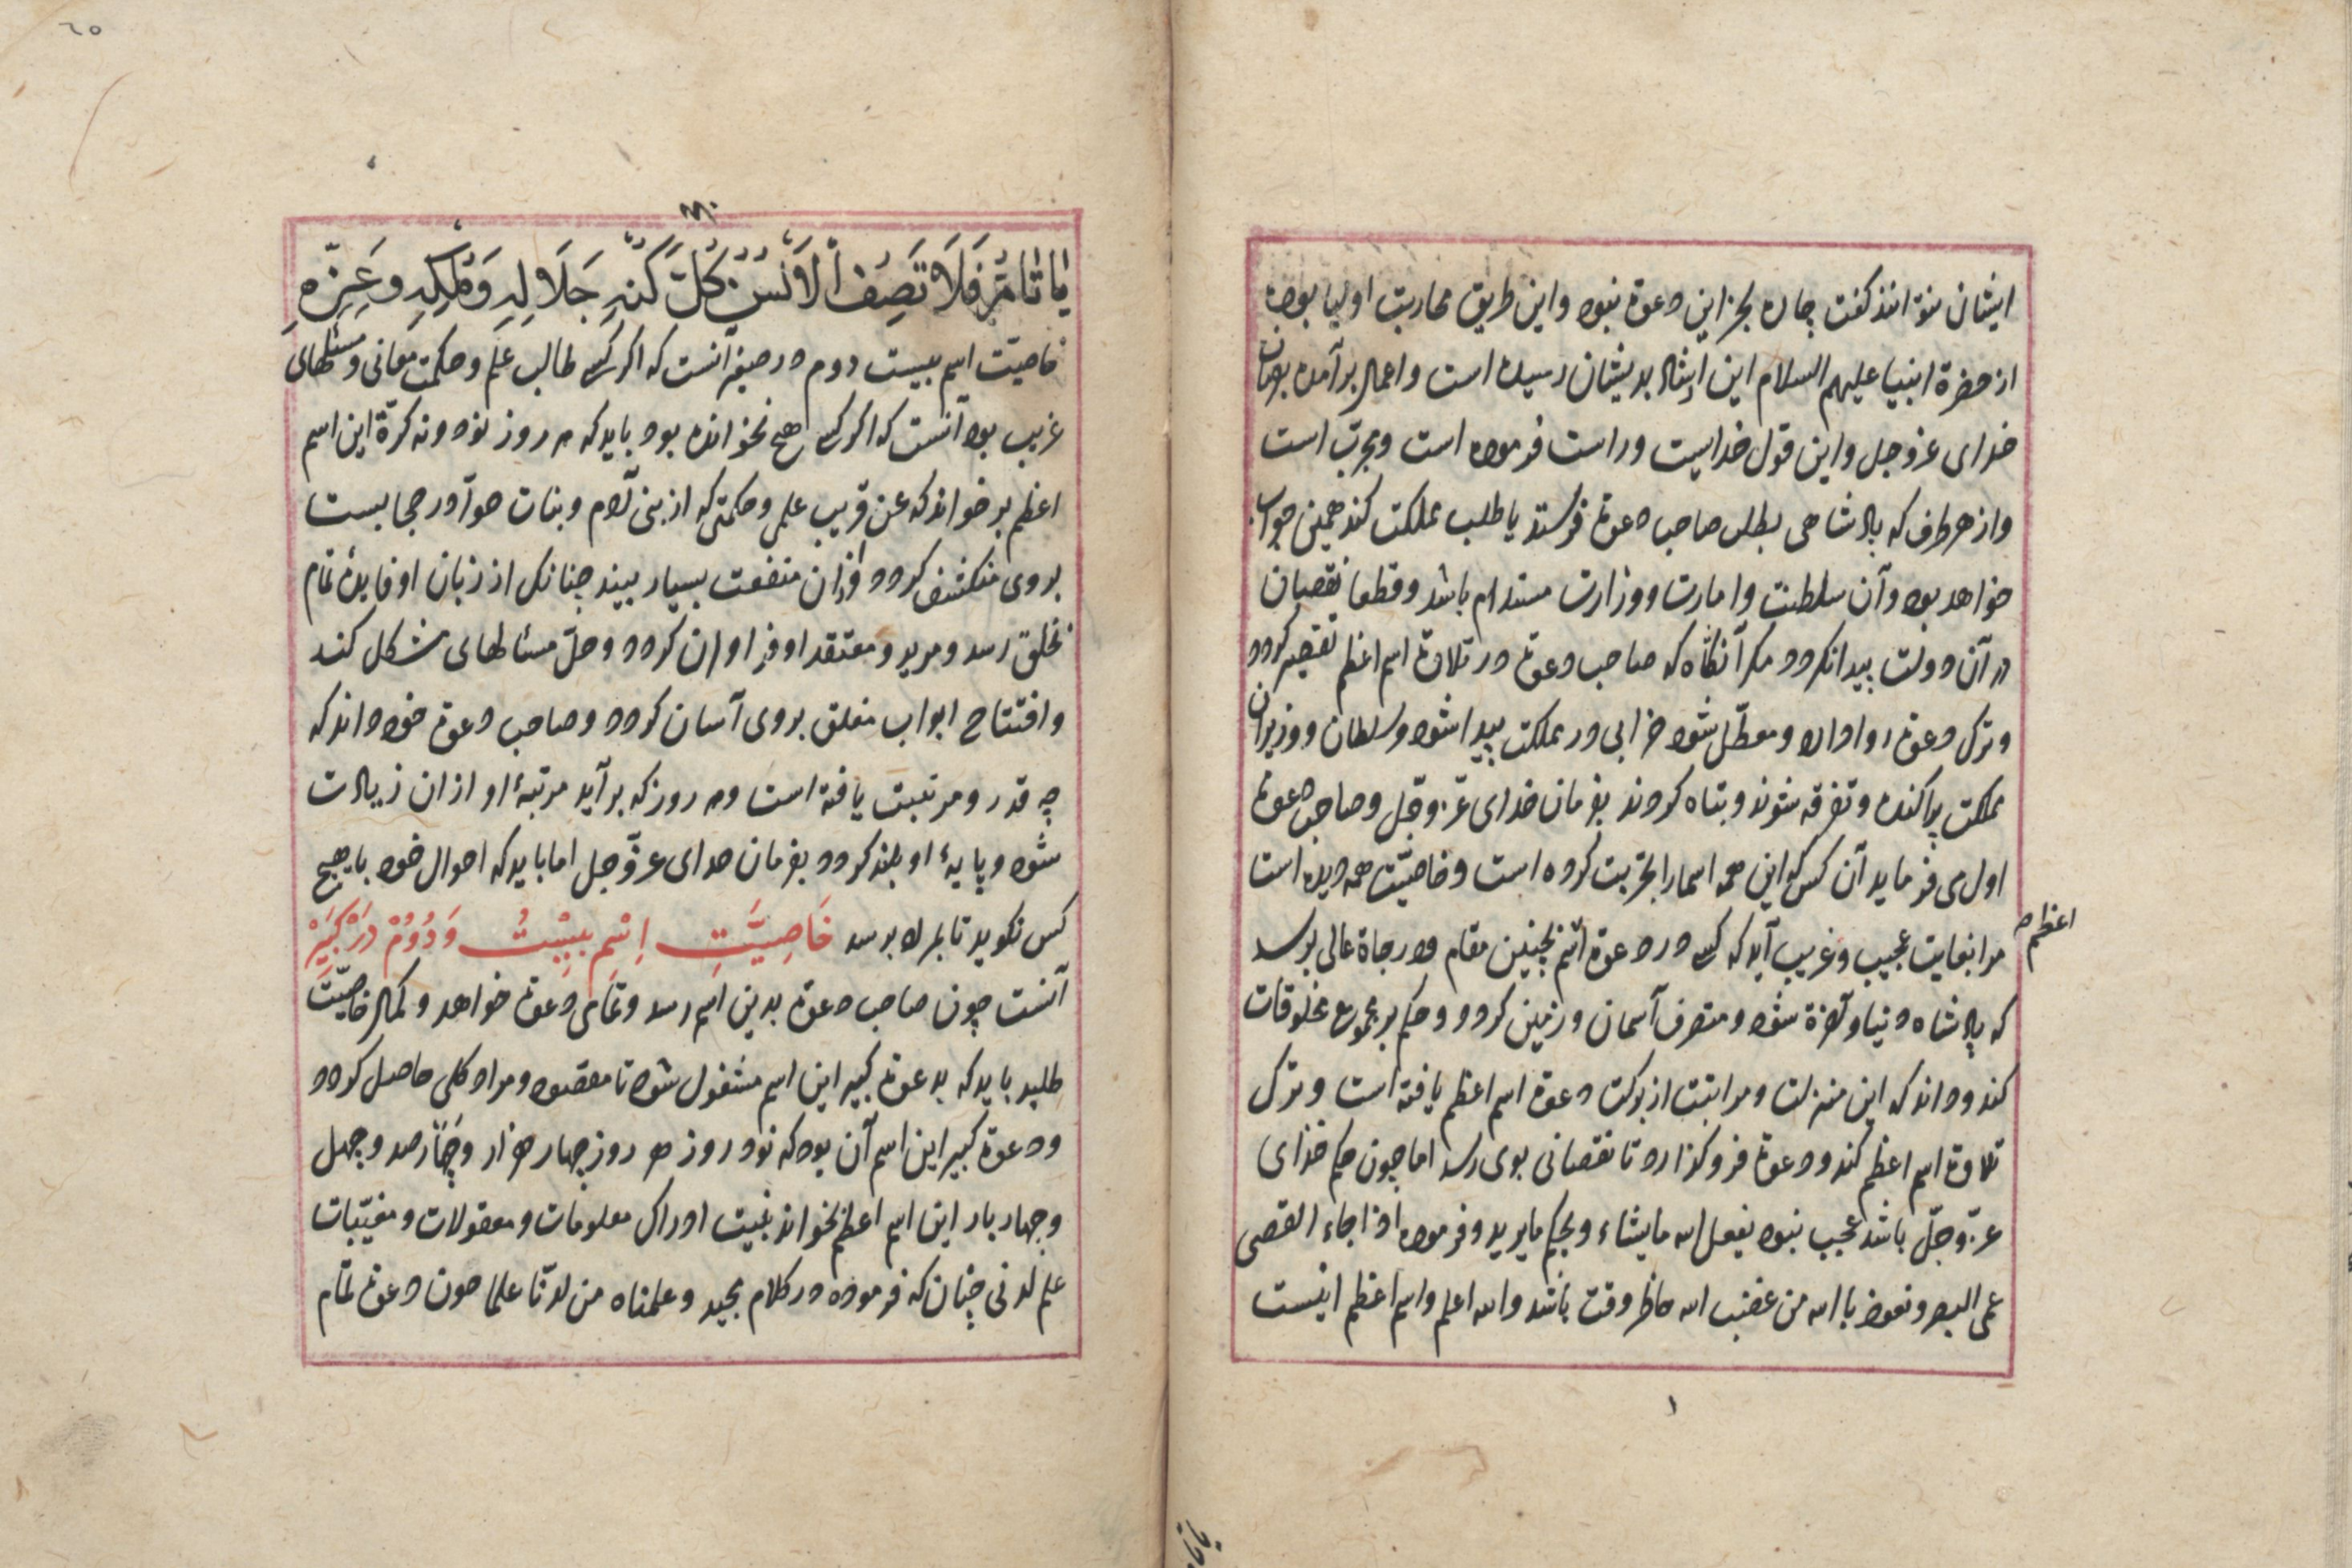 ایشان نتوانند کفت چاره بجز این دعوة نبود واین طریق محاربت اولیا بوده
از حضرة انبیا علیهم السلام این ارشاد بدیشان رسیده است واعمال برآمده بفرمان
خدای عزوجل واین قول خداست وراست فرموده است ومجرّب است
واز هر طرف که پادشاهی بطلب صاحب دعوة فرستد یا طلب مملکت کند همین جواب
خواهد بود وآن سلطنت وامارت ووزارت مستدام باشد وقطعا نقصان
در آن دولت پیدا نکردد مکر آنکاه که صاحب دعوة در تلاوة اسم اعظم تقصیر کردد
وترک دعوة روا دارد ومعطّل شود خرابی در مملکت پیدا شود وسلطان ووزیران
مملکت پراکنده وتفرقه شوند وتباه کردند بفرمان خدای عزّ وجلّ وصاحب دعوة
اول می فرماید آن کس که این همه اسما را تجربت کرده است وخاصیّت همه دیده است
مرا بغایت عجیب وغریب آید که کسی در دعوة اسم بچنین مقام ودرجاة عالی برسد
اعظم
که پادشاه دنیا وآخرة شود ومتصرف آسمان وزمین کردد وحکم بر مجموع مخلوقات
کند وداند که این منزلت ومراتبت از برکت دعوة اسم اعظم یافته است وترک
تلاوة اسم اعظم کند ودعوة فروکذارد تا نقصانی بوی رسد اما چون حکم خدای
عزّ وجلّ باشد عجب نبود یفعل الله مایشاء ویحکم مایرید وفرموده اذا جاء القضی
عمی البصر ونعوذ باالله من غضب الله حاظر وقت باشد والله اعلم واسم اعظم اینست
٦٥
یَا تَامُّ فَلَا تَصِفُ الْاَلْسُنُ کُلَّ کُنْهِ جَلَالِهِ وَمُلْکِهِ وَعِزِّهِ
خاصیّت اسم بیست دوم در صغیر آنست که اکر کسی طالب علم وحکمت معانی ومسئلهای
غریب بود آنست که اکر کسی هیچ نخوانده بود باید که هر روز نود ونه کرّة این اسم
اعظم بر خواند که عن قریب علمی وحکمتی که از بنی آدم وبنات حوا در حجابست
بر وی منکشف کردد وازان منفعت بسیار بیند چنانکه از زبان او فایدهٔ تمام
بخلق رسد ومرید ومعتقد او فراوان کردد وحلّ مسئالهای مشکل کند
وافتتاح ابواب مغلق بر وی آسان کردد وصاحب دعوة خود داند که
چه قدر ومرتبت یافته است وهر روز که برآید مرتبهٔ او ازان زیادت
شود وپایهٔ او بلند کردد بفرمان خدای عزّ وجل اما باید که احوال خود با هیچ
کس نکوید تا بمراد برسد خَاصِیَّتِ اِسْمِ بِیسْتُ وَدُوُمْ دَرْ کَبِیرْ
آنست چون صاحب دعوة بدین اسم رسد وتمامی دعوة خواهد وکمال خاصیّت
طلبد باید که بدعوة کبیر این اسم مشغول شود تا مقصود ومراد کلی حاصل کردد
ودعوة کبیر این اسم آن بود که نود روز هر روز چهار هزار وچهارصد وچهل
وچهار بار این اسم اعظم بخواند بنیت ادراک معلومات ومعقولات ومغیّبات
علم لدنی چنان که فرموده در کلام مجید وعلمناه من لدنّا علما چون دعوة تمام